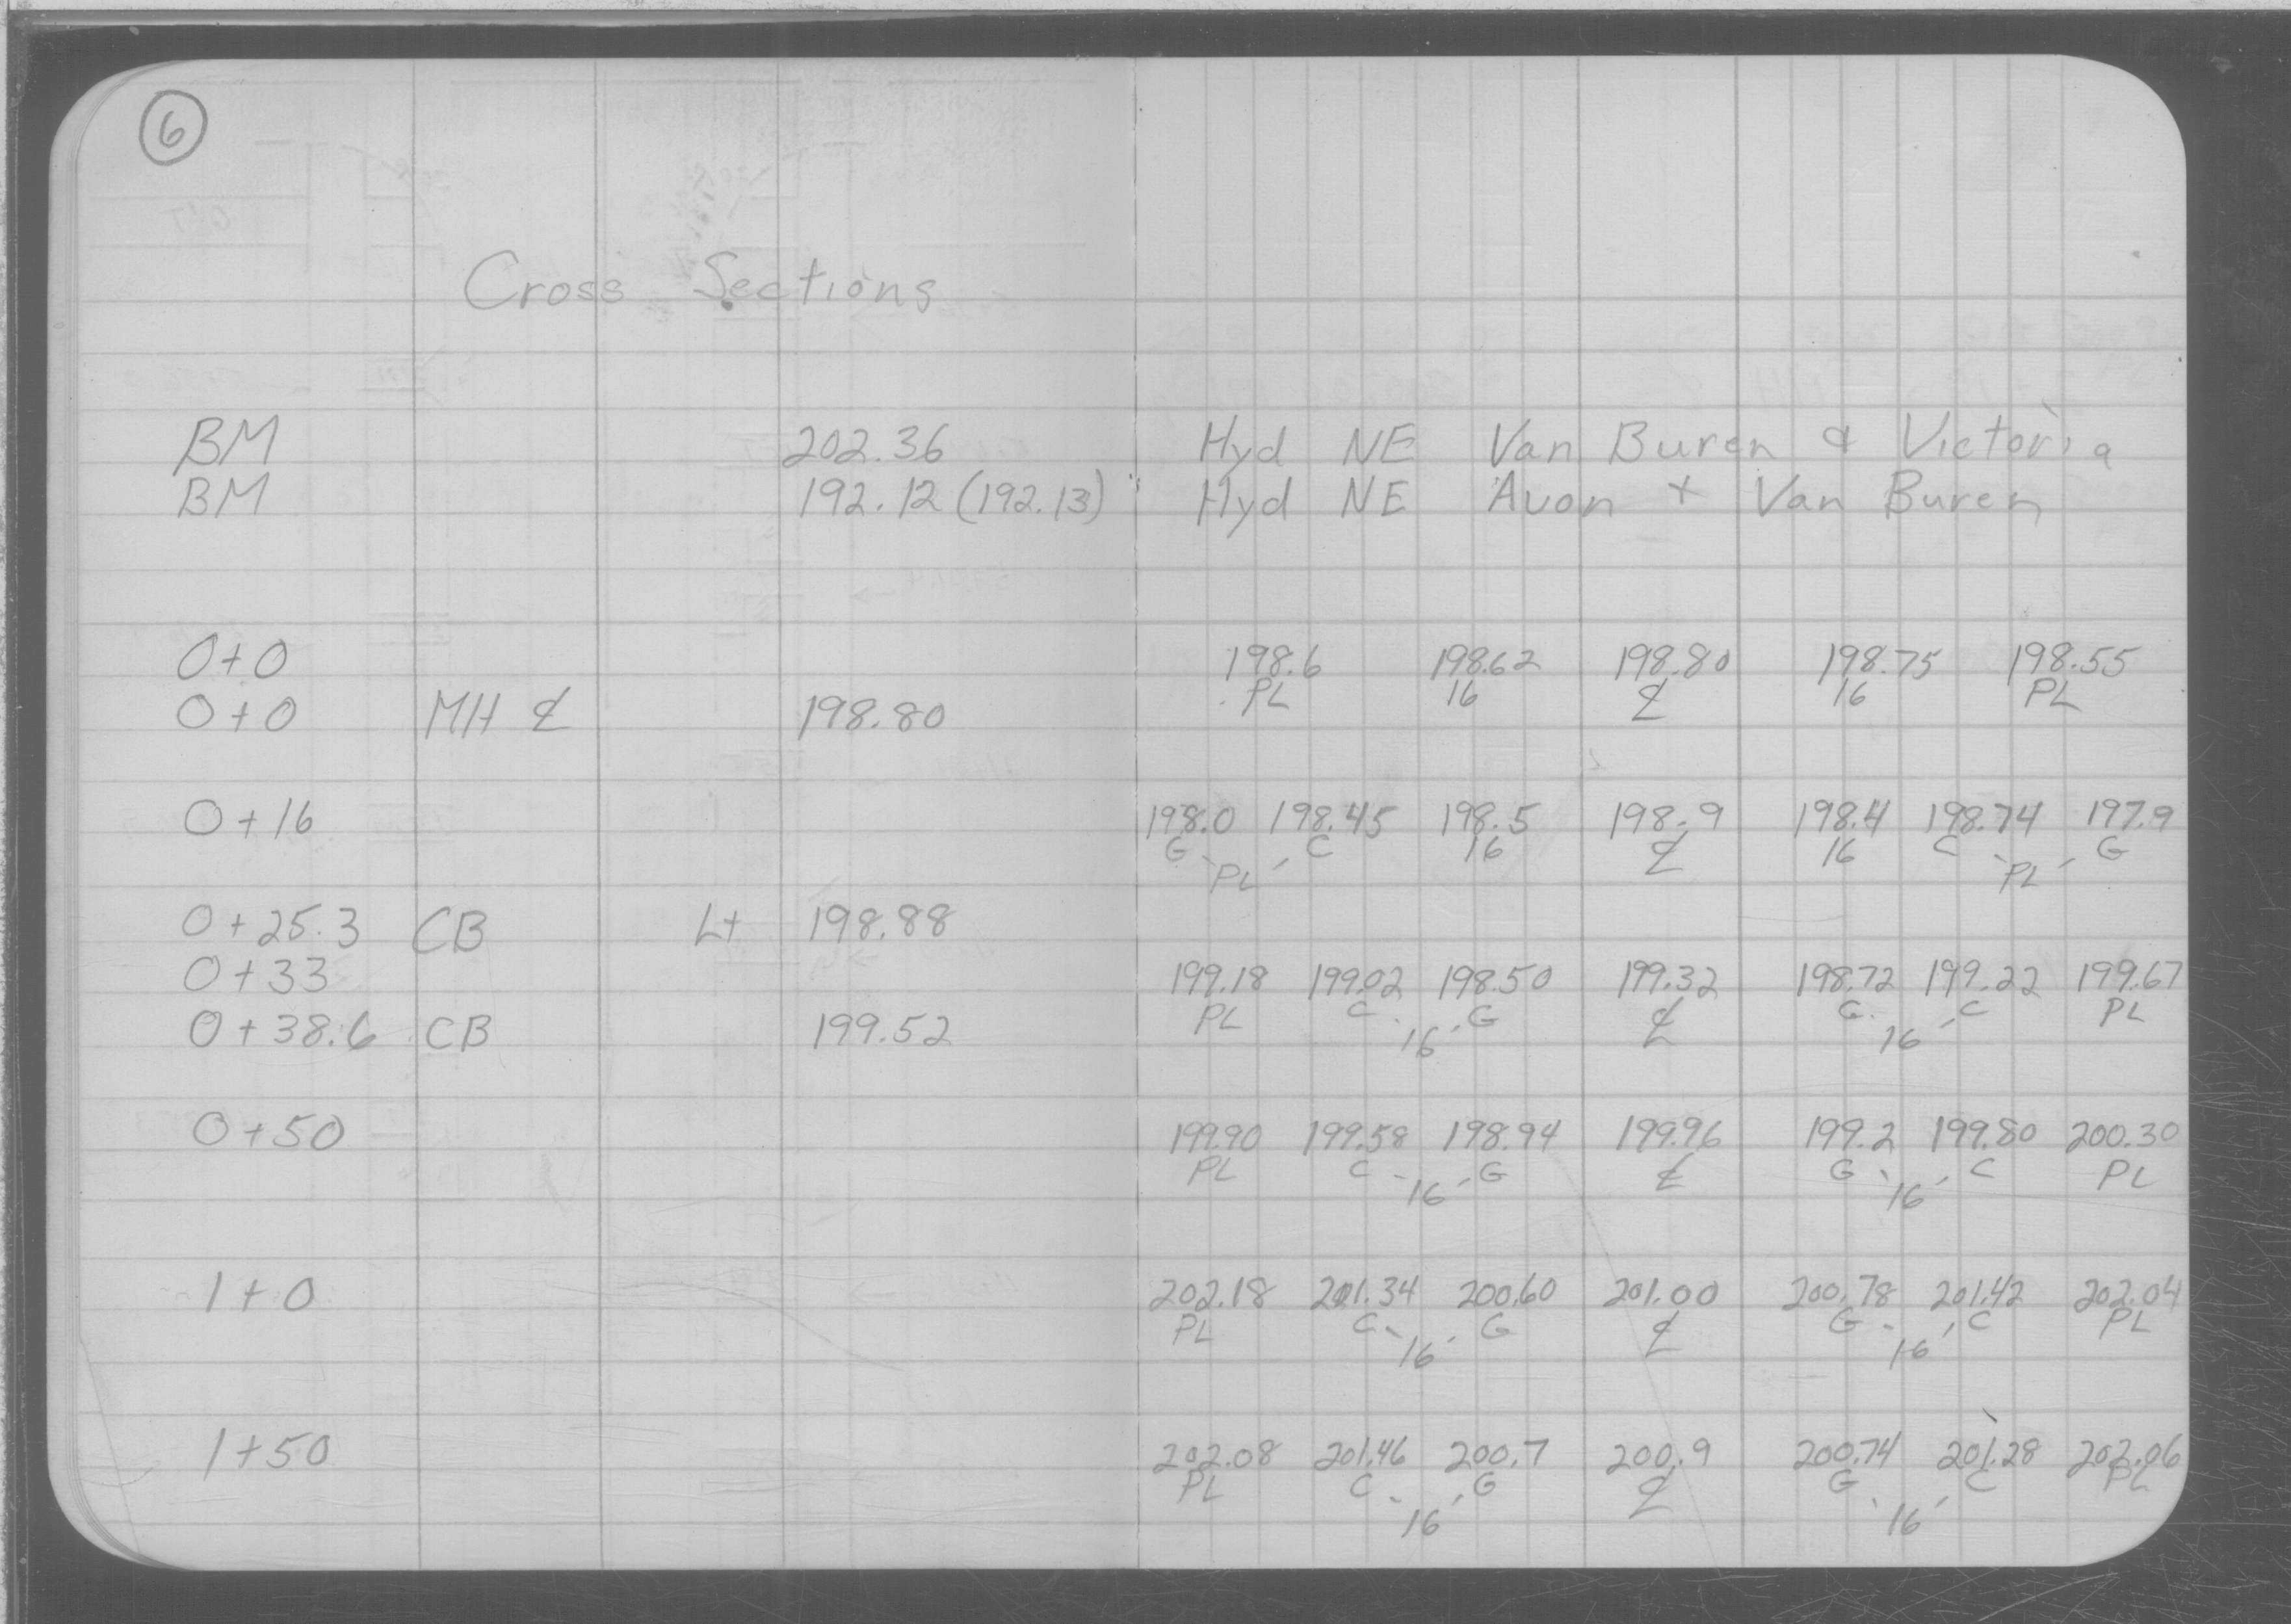 6
Cross Sections
BM 202.36 Hyd NE Van Buren & Victoria
BM 192.12 (192.13) Hyd NE Avon + Van Buren
0+0 198.6 198.62 198.80 198.75 198.55
PL 16 ℄ 16 PL
0+0 MH ℄ 198.80
0+16 198.0 198.45 198.5 198.9 198.4 198.74 197.9
G C 16 ℄ 16 C G
PL PL
0+25.3 CB Lt 198.88
0+33 199.18 199.02 198.50 199.32 198.72 199.22 199.67
PL C G ℄ G C PL
16 16
0+38.6 CB 199.52
0+50 199.90 199.58 198.94 199.96 199.2 199.80 200.30
PL C G ℄ G C PL
16 16
1+0 202.18 201.34 200.60 201.00 200.78 201.42 202.04
PL C G ℄ G C PL
16 16
1+50 202.08 201.46 200.7 200.9 200.74 201.28 202.06
PL C G ℄ G C PL
16 16